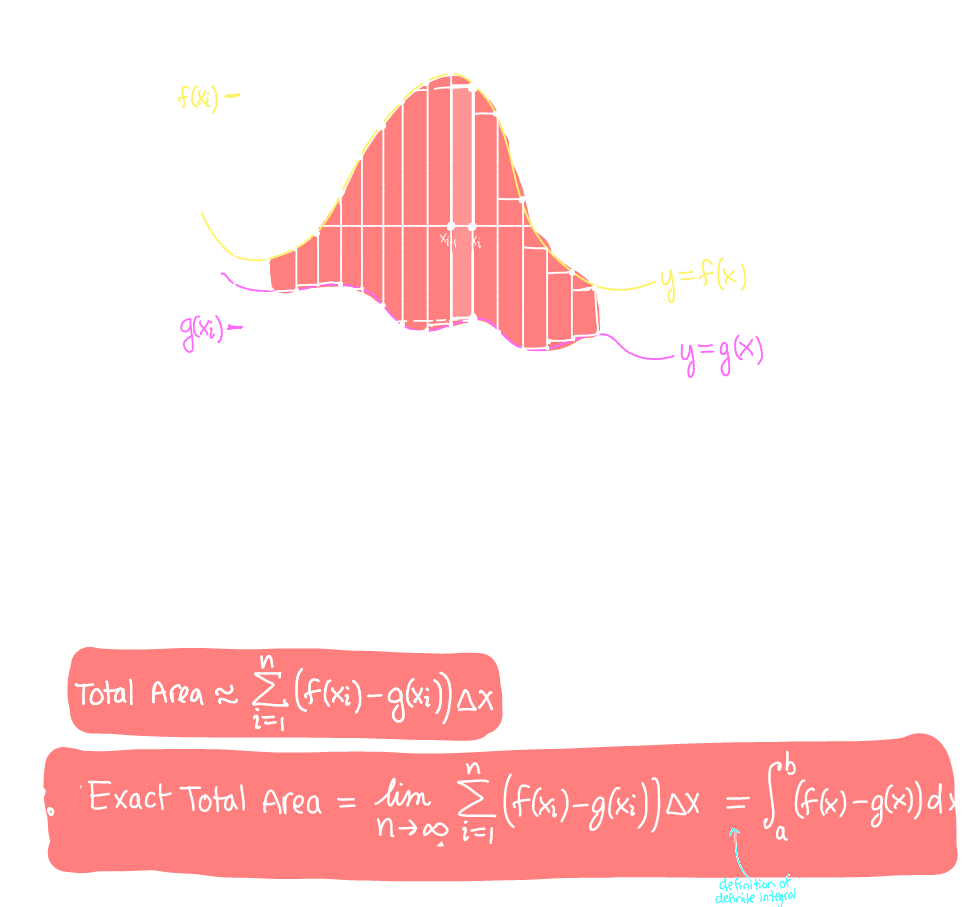 f(xᵢ) –
xᵢ₋₁ xᵢ
y=f(x)
g(xᵢ) –
y=g(x)
Total Area ≈ ∑ᵢ₌₁ⁿ (f(xᵢ)–g(xᵢ))Δx
. Exact Total Area = lim n→∞ ∑ᵢ₌₁ⁿ (f(xᵢ)–g(xᵢ))Δx = ∫ₐᵇ (f(x)–g(x))dx
definition of
definite integral